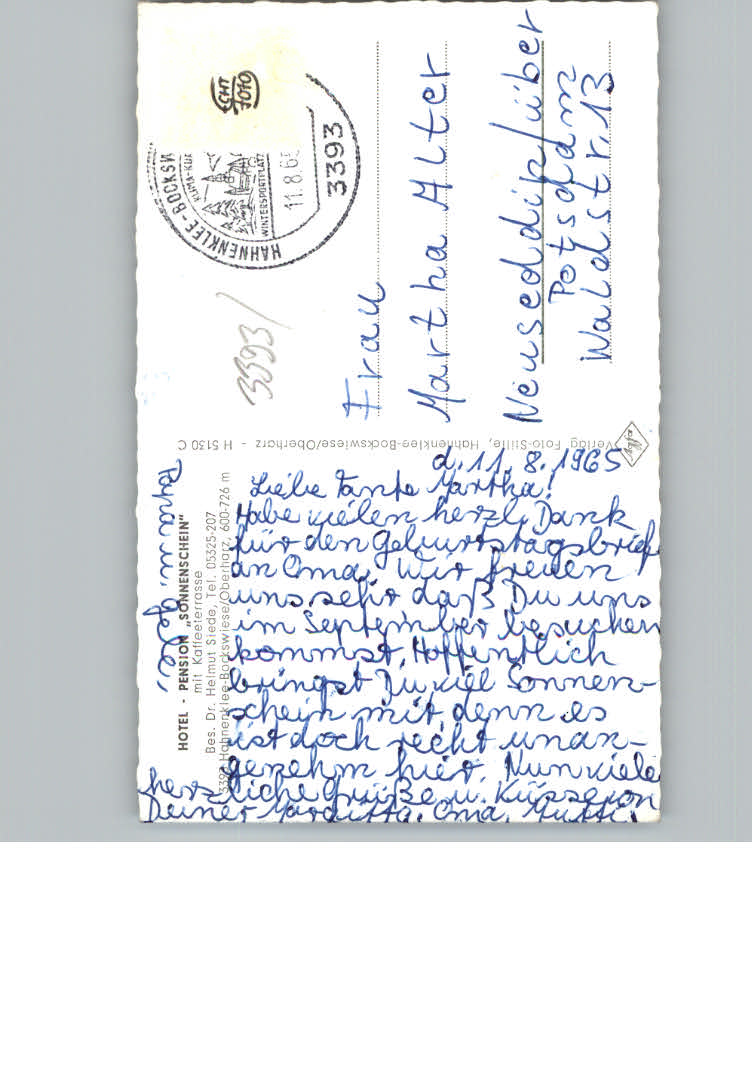 HOTEL - PENSION „SONNENSCHEIN"
mit Kaffeeterrasse
Bes. Dr. Helmut Siede, Tel. 05325-207
3393 Hahnenklee-Bockswiese/Oberharz, 600-726 m
d. 11. 8. 1965
Liebe Tante Martha!
Habe vielen herzl. Dank
für den Geburtstagsbrief
an Oma. Wir freuen
uns sehr daß Du uns
im September besuchen
kommst. Hoffentlich
bringst Du viel Sonnen-
schein mit, denn es
ist doch recht unan-
genehm hier. Nun viele
herzliche Grüße u. Küsse von
Deiner Margitta, Oma, Mutti,
Papa u.
Verlag Foto-Stille, Hahnenklee-Bockswiese/Oberharz - H 5130 C
ECHT
FOTO
HAHNENKLEE-BOCKSW
WINTERSPORTPLATZ
11.8.65
3393
3393/
Frau
Martha Alter
Neuseddin/über
Potsdam
Waldstr. 13